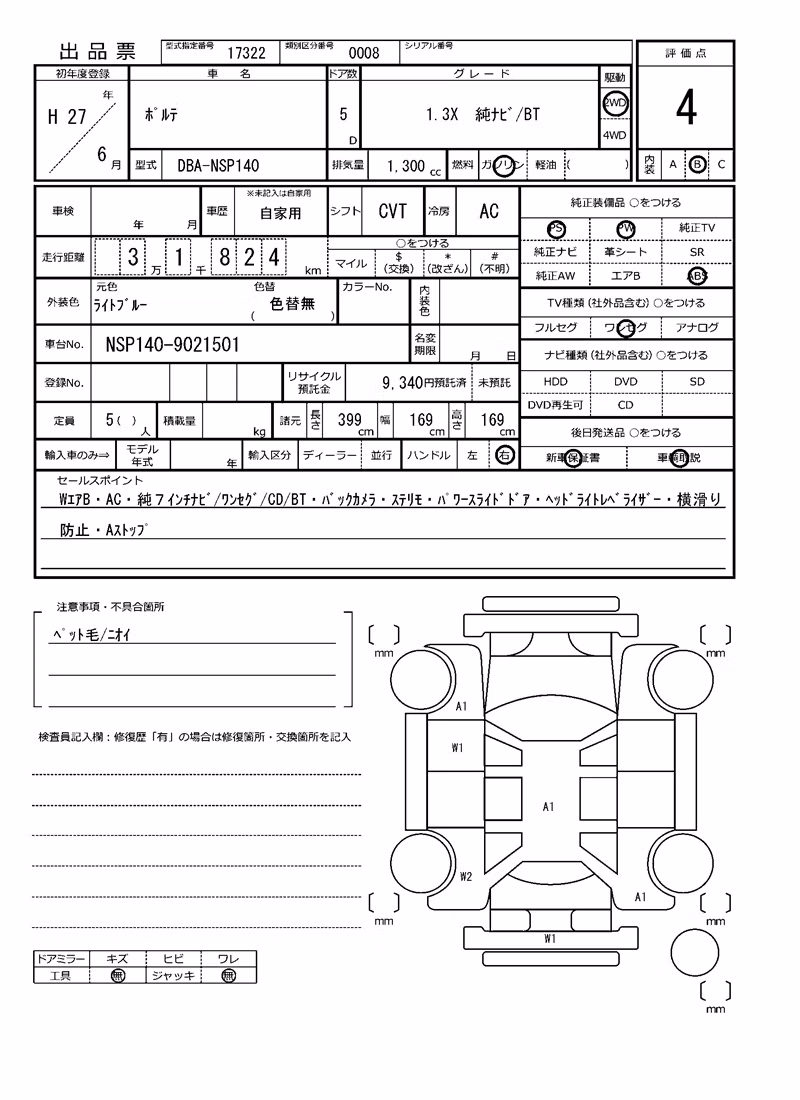 出品票 型式指定番号 17322 類別区分番号 0008 シリアル番号
評価点
4
内装 A B C
初年度登録 車名 ドア数 グレード 駆動
H 27 年 6 月 ﾎﾟﾙﾃ 5 D 1.3X 純ﾅﾋﾞ/BT 2WD
4WD
型式 DBA-NSP140 排気量 1,300 cc 燃料 ガソリン 軽油 ( )
車検 年 月 車歴 ※未記入は自家用 自家用 シフト CVT 冷房 AC
走行距離 3 万 1 千 8 2 4 km ○をつける
マイル $(交換) *(改ざん) #(不明)
外装色 元色 ﾗｲﾄﾌﾞﾙｰ 色替 ( 色替無 ) カラーNo. 内装色
車台No. NSP140-9021501 名変期限 月 日
登録No. リサイクル預託金 9,340円預託済 未預託
定員 5( )人 積載量 kg 諸元 長さ 399 cm 幅 169 cm 高さ 169 cm
輸入車のみ⇒ モデル年式 年 輸入区分 ディーラー 並行 ハンドル 左 右
純正装備品 ○をつける
PS PW 純正TV
純正ナビ 革シート SR
純正AW エアB ABS
TV種類(社外品含む)○をつける
フルセグ ワンセグ アナログ
ナビ種類(社外品含む)○をつける
HDD DVD SD
DVD再生可 CD
後日発送品 ○をつける
新車保証書 車輌取説
セールスポイント
WｴｱB・AC・純７ｲﾝﾁﾅﾋﾞ/ﾜﾝｾｸﾞ/CD/BT・ﾊﾞｯｸｶﾒﾗ・ｽﾃﾘﾓ・ﾊﾟﾜｰｽﾗｲﾄﾞﾄﾞｱ・ﾍｯﾄﾞﾗｲﾄﾚﾍﾞﾗｲｻﾞｰ・横滑り
防止・Aｽﾄｯﾌﾟ
注意事項・不具合箇所
ﾍﾟｯﾄ毛/ﾆｵｲ
検査員記入欄：修復歴「有」の場合は修復箇所・交換箇所を記入
ドアミラー キズ ヒビ ワレ
工具 無 ジャッキ 無
mm
mm
A1
W1
A1
W2
A1
mm
mm
W1
mm